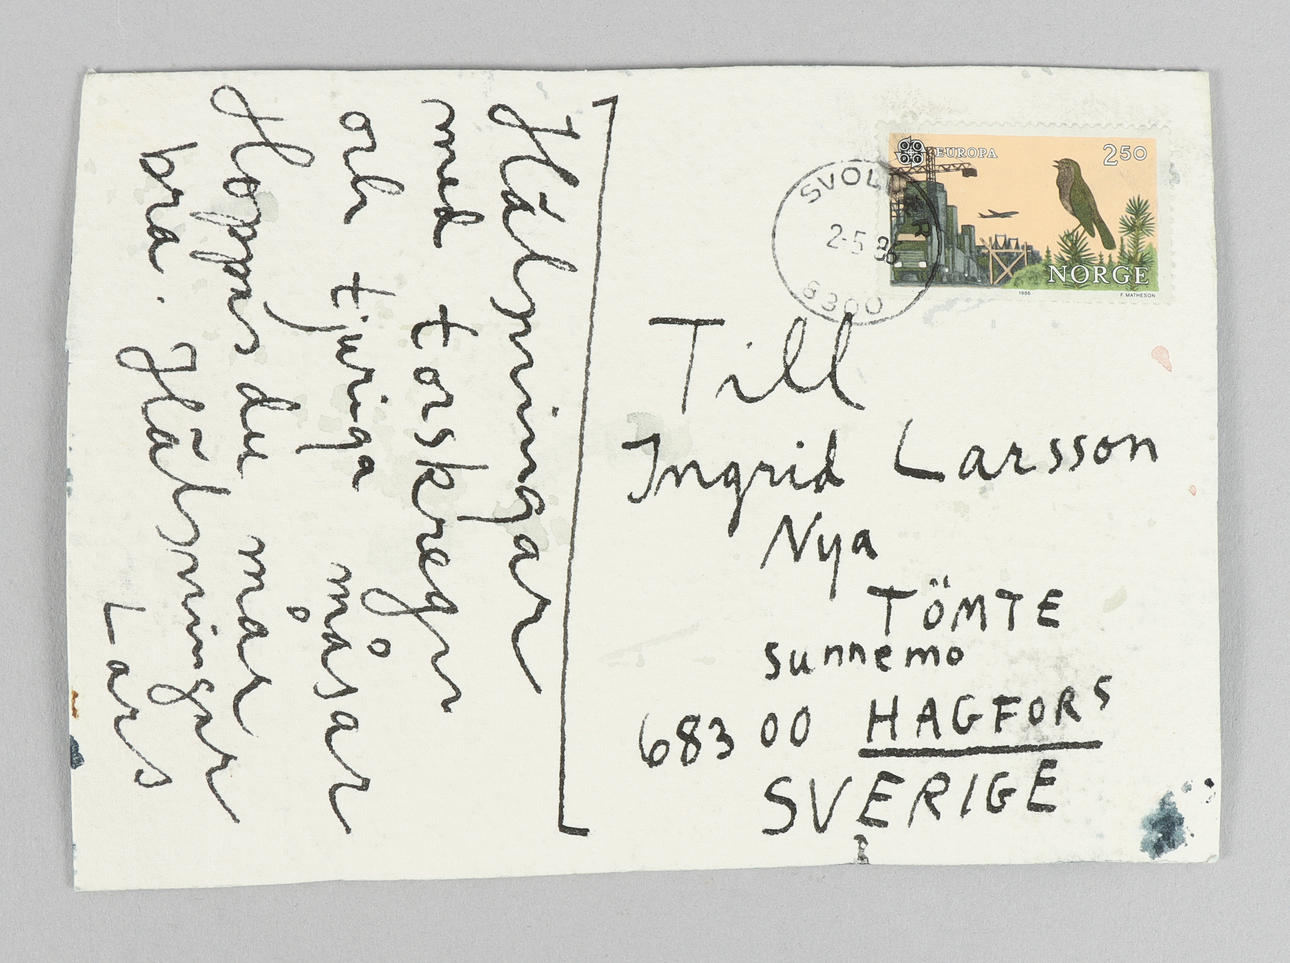 Hälsningar
med torskregn
och tjuriga måsar
Hoppas du mår
bra. Hälsningar
Lars
EUROPA
250
NORGE
1986
F. MATHESON
SVOLVÆR
2-5 86
8300
Till
Ingrid Larsson
Nya
TÖMTE
Sunnemo
683 00 HAGFORS
SVERIGE